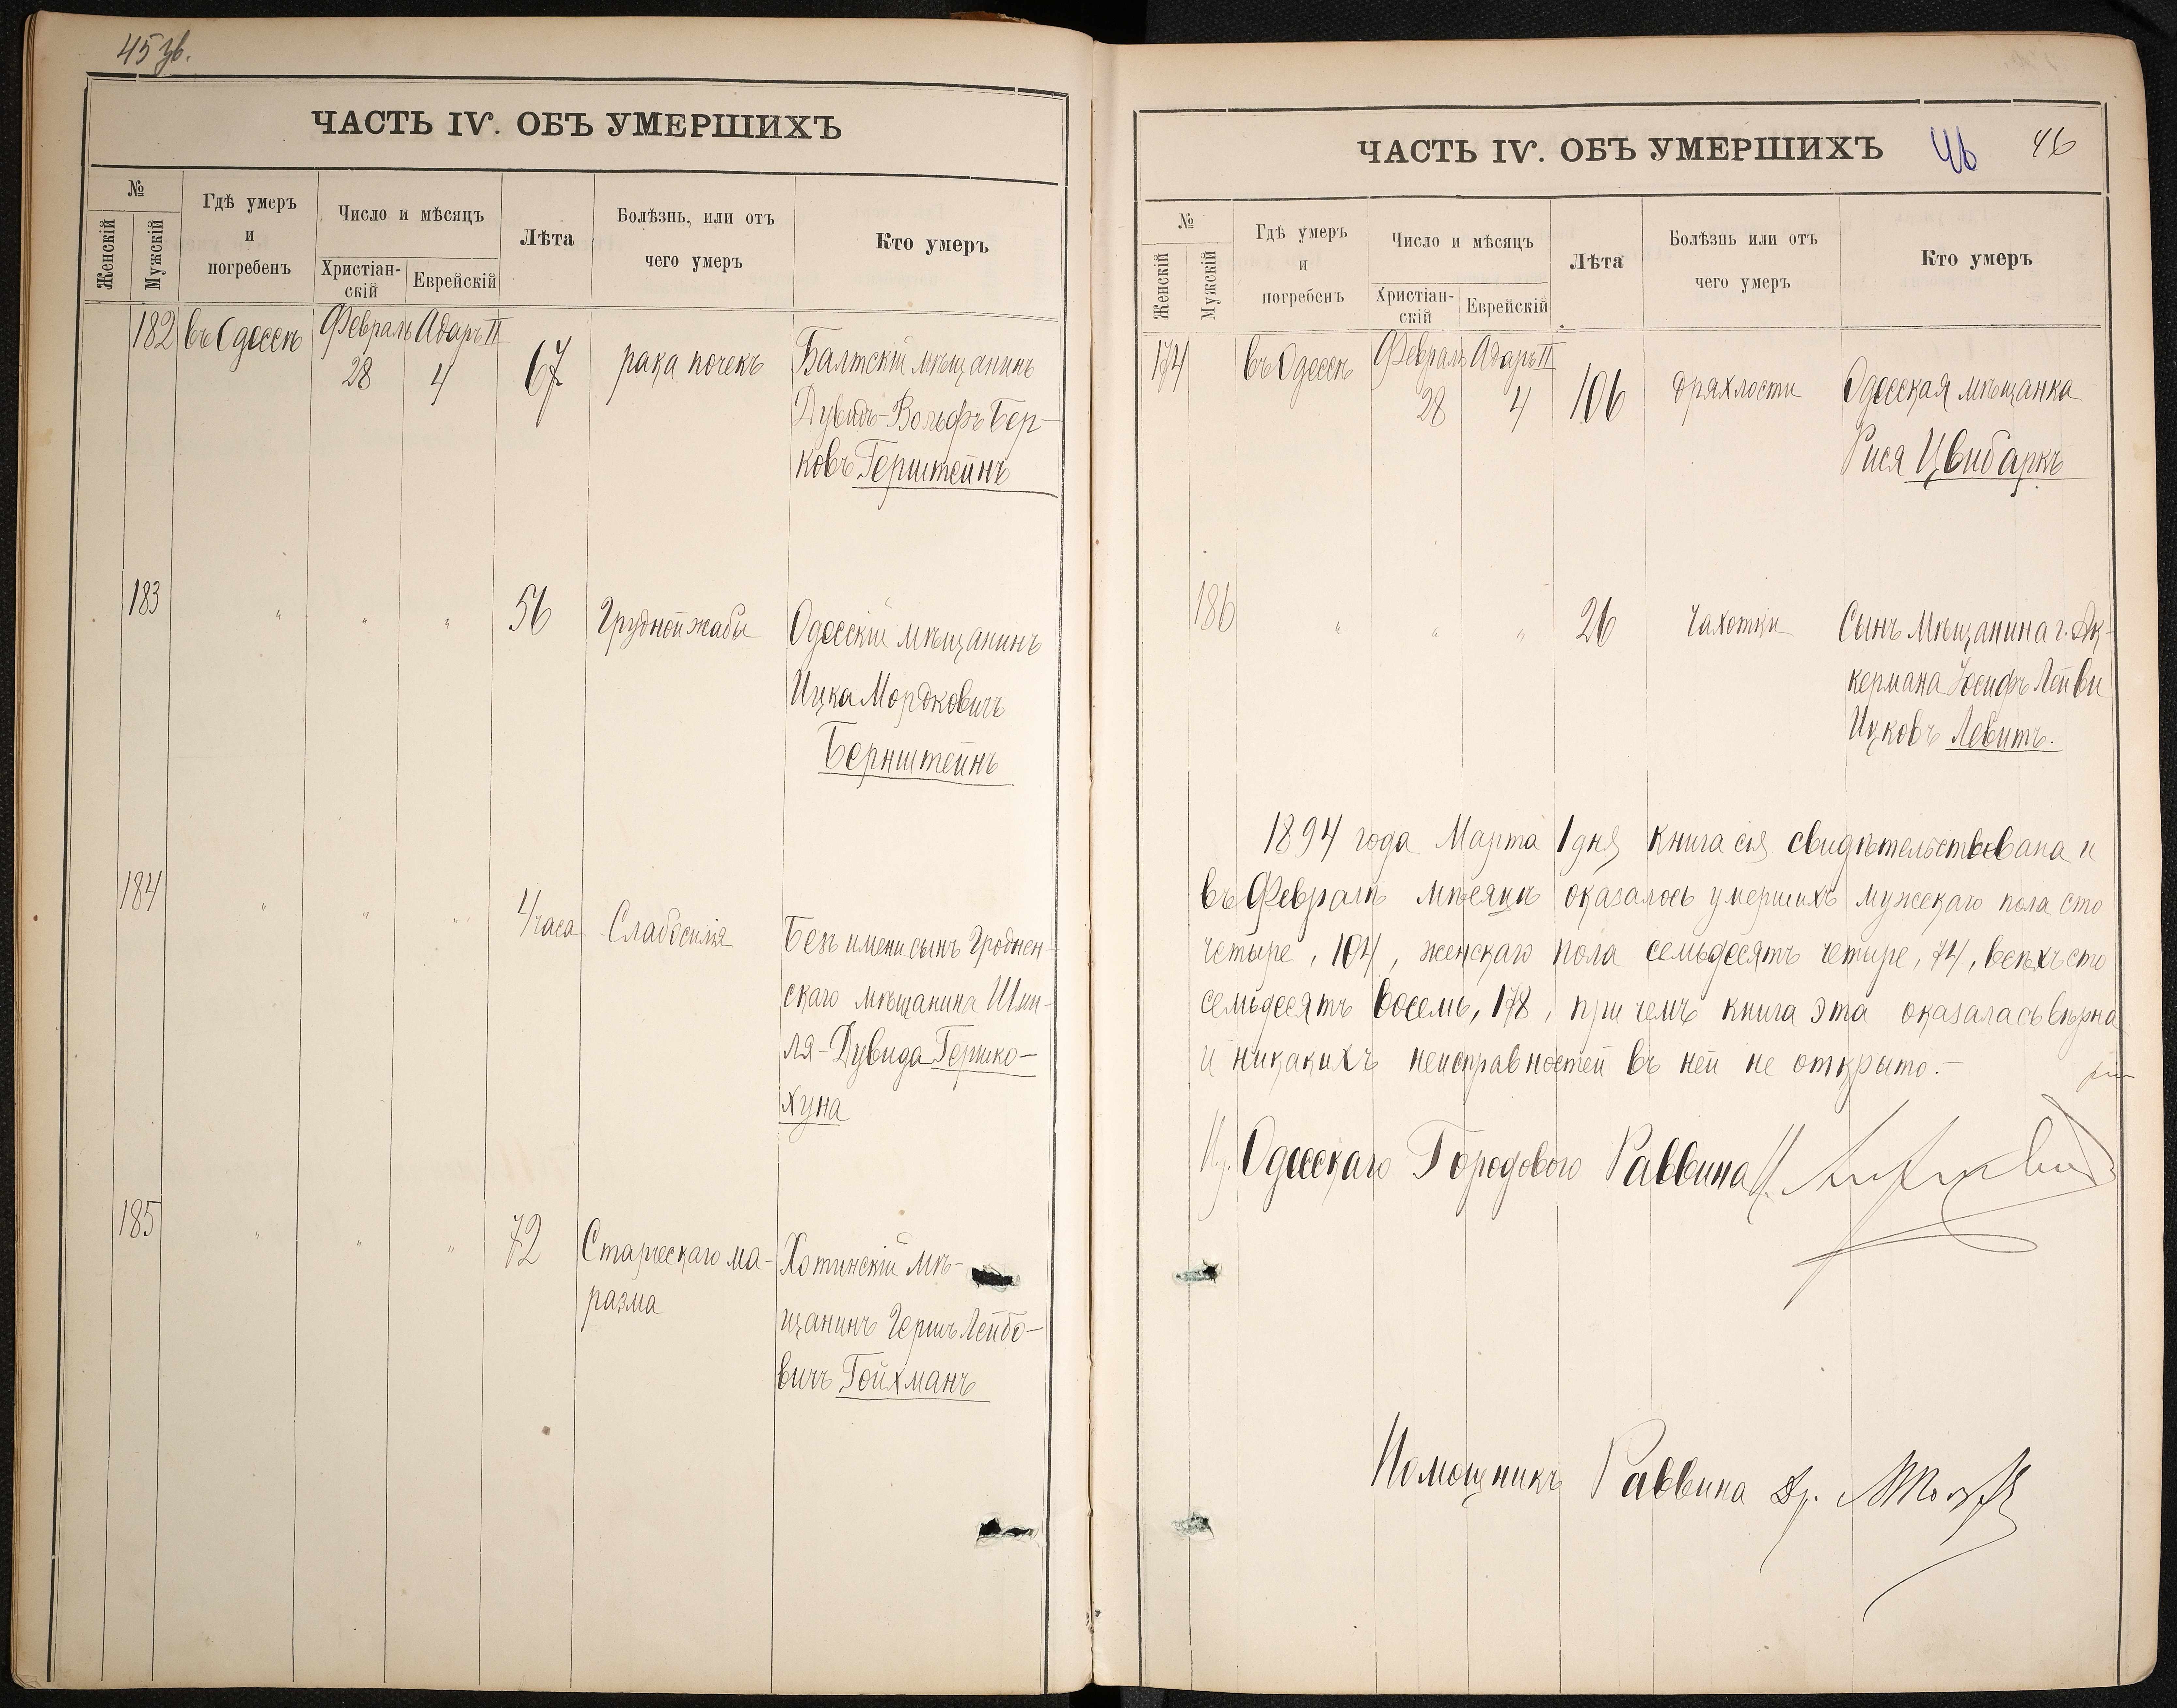 45 зв.
ЧАСТЬ IV. ОБЪ УМЕРШИХЪ
№
Женскій
Мужскій
Гдѣ умеръ
и
погребенъ
Число и мѣсяцъ
Христіан-
скій
Еврейскій
Лѣта
Болѣзнь, или отъ
чего умеръ
Кто умеръ
182 въ Одессѣ Февраль Адаръ II
28 4 67 рака почекъ Балтскій мѣщанинъ
Дувидъ-Вольфъ Бер-
ковъ Герштейнъ
183 " " " 56 Грудной жабы Одесскій мѣщанинъ
Ицка Мордковичъ
Бернштейнъ
184 " " " 4 часа Слабосилія Безъ имени сынъ Гроднен-
скаго мѣщанина Шми-
ля-Дувида Гершко-
хуна
185 " " " 72 Старческаго ма- Хотинскій мѣ-
разма щанинъ Гершъ Лейбо-
вичъ Гойхманъ
ЧАСТЬ IV. ОБЪ УМЕРШИХЪ 46 46
№
Женскій
Мужскій
Гдѣ умеръ
и
погребенъ
Число и мѣсяцъ
Христіан-
скій
Еврейскій
Лѣта
Болѣзнь или отъ
чего умеръ
Кто умеръ
174 въ Одессѣ Февраль Адаръ II
28 4 106 дряхлости Одесская мѣщанка
Рися Цвибаркъ
186 " " " 26 Чахотки Сынъ мѣщанина г. Ак-
кермана Іосифъ Лейви
Ицковъ Левитъ.
1894 года Марта 1 дня книга сія свидѣтельствована и
въ Февралѣ мѣсяцѣ оказалось умершихъ мужскаго пола сто
четыре, 104, женскаго пола семьдесятъ четыре, 74, всѣхъ сто
семьдесятъ восемь, 178, при чемъ книга эта оказалась вѣрна
и никакихъ неисправностей въ ней не открыто.-
Одесскаго Городового Раввина
Помощникъ Раввина Др.